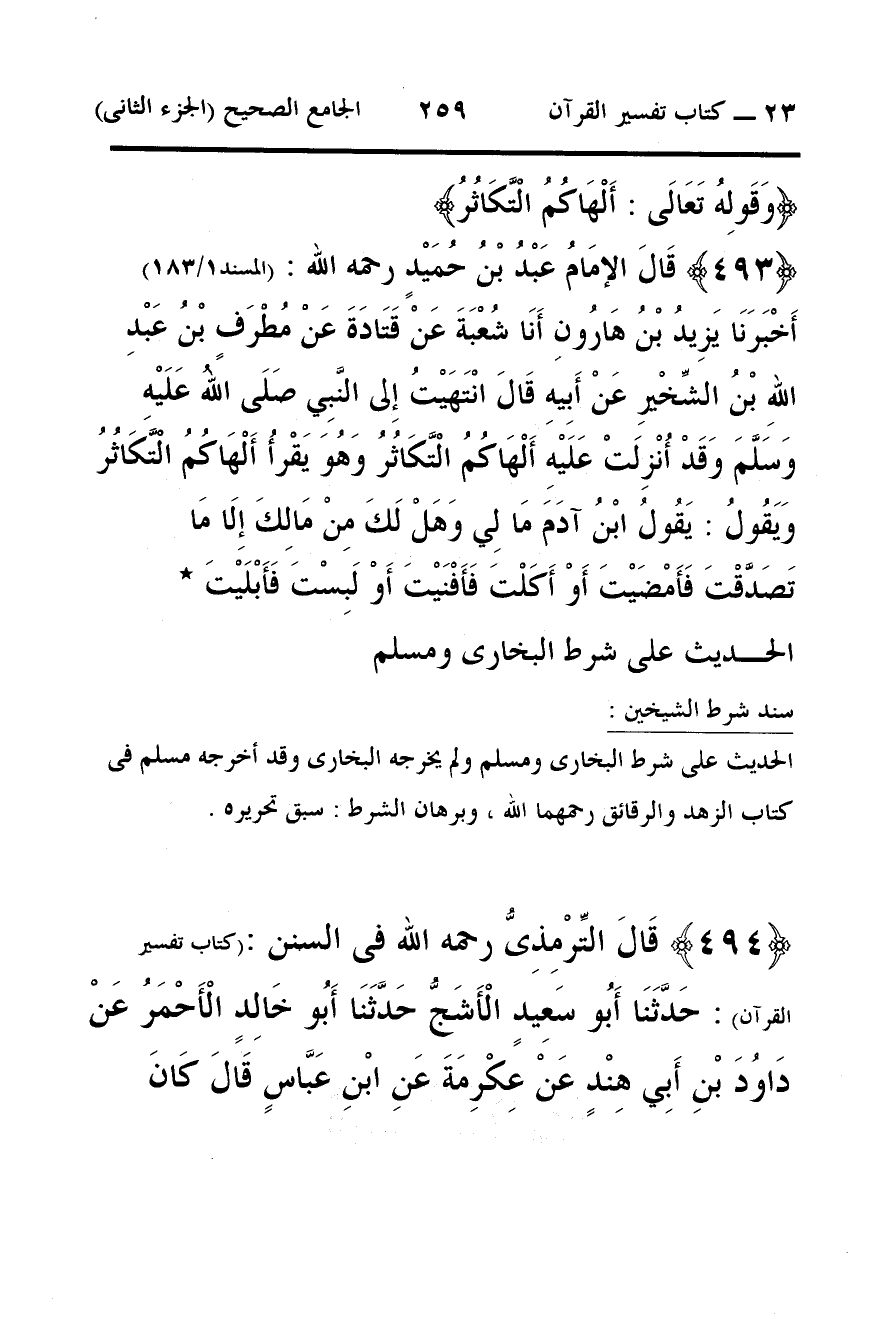 ٢٣ ــ كتاب تفسير القرآن ٢٥٩ الجامع الصحيح (الجزء الثانى)
﴿وَقَولِهُ تَعَالَى : أَلْهَاكُمُ التَّكَاثُرُ﴾
﴿٤٩٣﴾ قَالَ الإمَامُ عَبْدُ بْنُ حُمَيْدٍ رحمه الله : (المسند١٨٣/١)
أَخْبَرَنَا يَزِيدُ بْنُ هَارُونِ أَنَا شُعْبَةَ عَنْ قَتَادَةَ عَنْ مُطْرَفٍ بْنُ عَبْدِ
اللهِ بْنُ الشِّخْيْرِ عَنْ أَبِيهِ قَالَ انْتَهَيْتُ إلى النَّبِي صَلَى اللهُ عَلَيْهِ
وَسَلَّمَ وَقَدْ أُنْزِلَتْ عَلَيْهِ أَلْهَاكُمُ التَّكَاثُرُ وَهُوَ يَقْرأُ أَلْهَاكُمُ التَّكَاثُرُ
وَيَقُولُ : يَقُولُ ابْنُ آدَمَ مَا لِي وَهَلْ لَكَ مِنْ مَالِكَ إِلَا مَا
تَصَدَّقْتَ فَأَمْضَيْتَ أَوْ أَكَلْتَ فَأَفْنَيْتَ أَوْ لَبِسْتَ فَأَبْلَيْتَ *
الحـــديث على شرط البخارى ومسلم
سند شرط الشيخين :
الحديث على شرط البخارى ومسلم ولم يخرجه البخارى وقد أخرجه مسلم فى
كتاب الزهد والرقائق رحمهما الله ، وبرهان الشرط : سبق تحريره .
﴿٤٩٤﴾ قَالَ التِّرْمِذِىُّ رحمه الله فى السنن :(كتاب تفسير
القرآن) : حَدَّثَنَا أَبُو سَعِيدٍ الْأَشَجُّ حَدَّثَنَا أَبُو خَالِدٍ الْأَحْمَرُ عَنْ
دَاوُدَ بْنِ أَبِي هِنْدٍ عَنْ عِكْرِمَةَ عَنِ ابْنِ عَبَّاسٍ قَالَ كَانَ